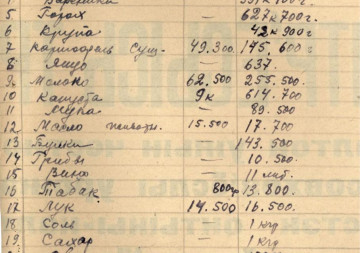 5 Горох — 627к700г.
6 Крупа 42к900г
7 Картофель Суш. 49.300 175.600г
8 Яйцо — 637.
9 Молоко 62.500 255.500
10 Капуста 9к 614.700
11 Мука — 89.500
12 Масло животн. 15.500 17.700
13 143.500
14 Грибы — 10.500
15 Вино — 11 лит.
16 Табак 800гр 13.800
17 Лук 14.500 16.500
18 Соль — 1 кгд
19 Сахар — 1 кгд